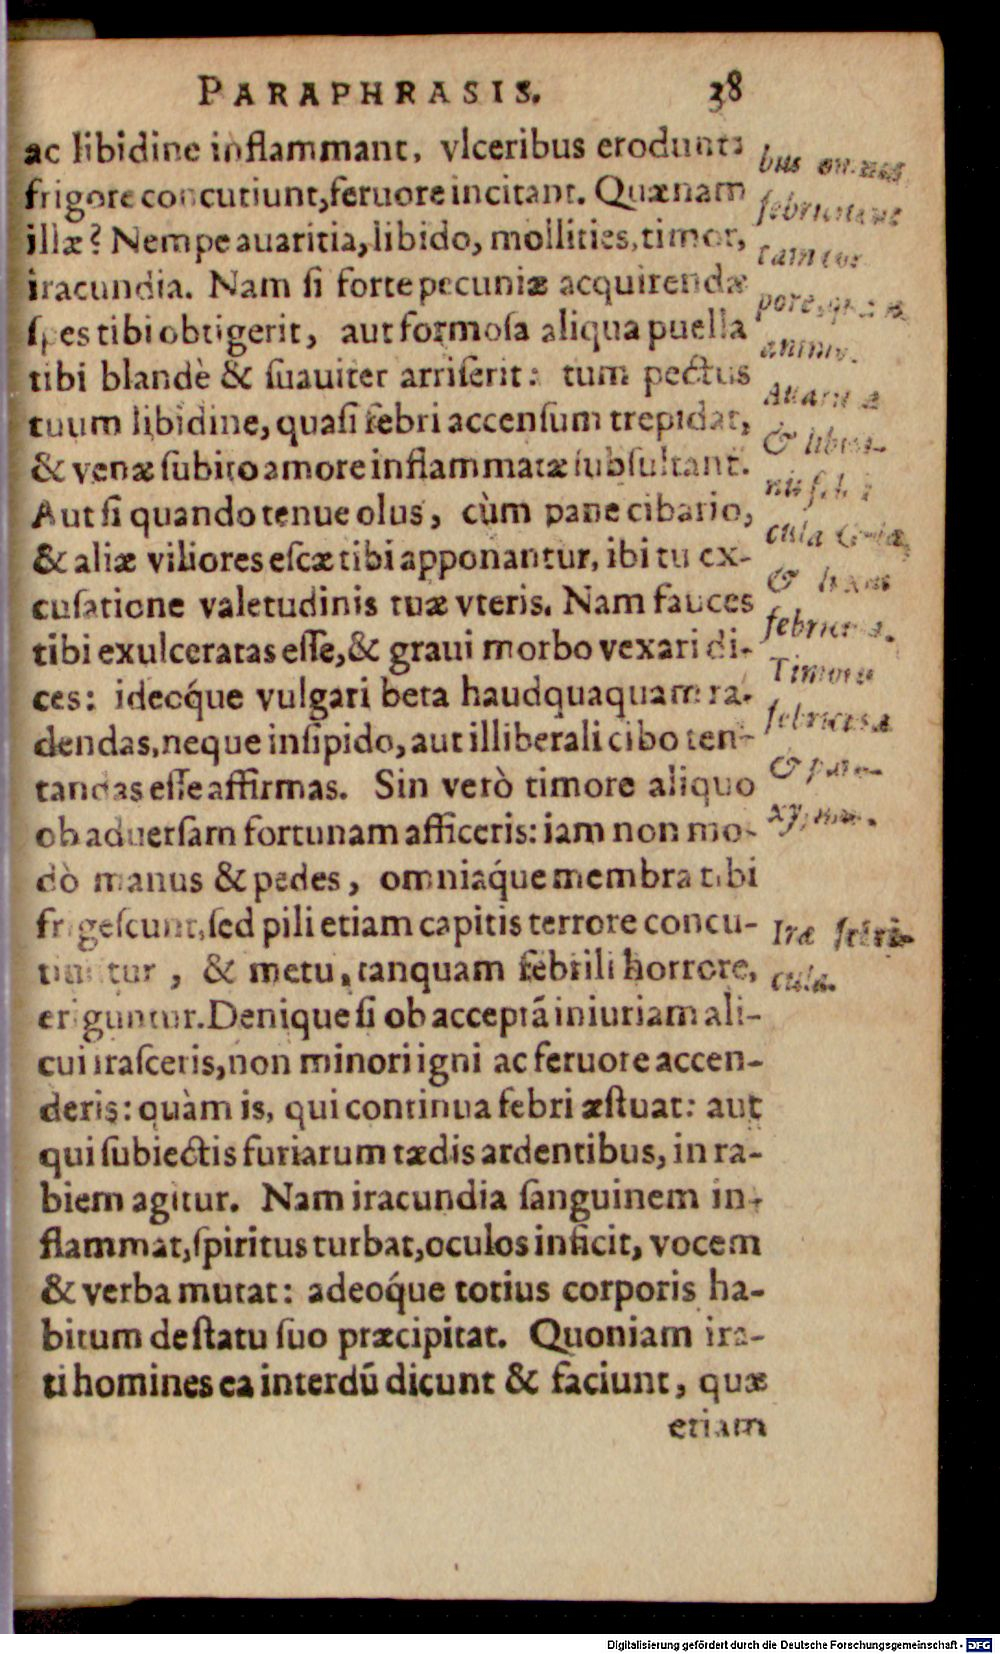 PARAPHRASIS. 38
ac libidine inflammant, vlceribus erodunt:
frigore concutiunt, feruore incitant. Quænam
illæ? Nempe auaritia, libido, mollities, timor,
iracundia. Nam ſi forte pecuniæ acquirendæ
ſpes tibi obtigerit, aut formoſa aliqua puella
tibi blandè & ſuauiter arriſerit: tum pectus
tuum libidine, quaſi febri accenſum trepidat,
& venæ ſubito amore inflammatæ ſubſultant.
Aut ſi quando tenue olus, cùm pane cibario,
& aliæ viliores eſcæ tibi apponantur, ibi tu ex-
cuſatione valetudinis tuæ vteris. Nam fauces
tibi exulceratas eſſe, & graui morbo vexari di-
ces: ideoq́ue vulgari beta haudquaquam ra-
dendas, neque inſipido, aut illiberali cibo ten-
tandas eſſe affirmas. Sin verò timore aliquo
ob aduerſam fortunam afficeris: iam non mo-
dò manus & pedes, omniaq́ue membra tibi
frigeſcunt, ſed pili etiam capitis terrore concu-
tiuntur, & metu, tanquam febrili horrore,
eriguntur. Denique ſi ob acceptã iniuriam ali-
cui iraſceris, non minori igni ac feruore accen-
deris: quàm is, qui continua febri æſtuat: aut
qui ſubiectis furiarum tædis ardentibus, in ra-
biem agitur. Nam iracundia ſanguinem in-
flammat, ſpiritus turbat, oculos inficit, vocem
& verba mutat: adeoq́ue totius corporis ha-
bitum de ſtatu ſuo præcipitat. Quoniam ira-
ti homines ea interdũ dicunt & faciunt, quæ
etiam
bus omnes
febricitant
tam cor
pore, quàm
animo.
Auariti æ
& libidi-
nis febri
cula
&
febricula.
Timoris
febricula
& paro-
xyſmus.
Iræ febri-
cula.
Digitalisierung gefördert durch die Deutsche Forschungsgemeinschaft - DFG